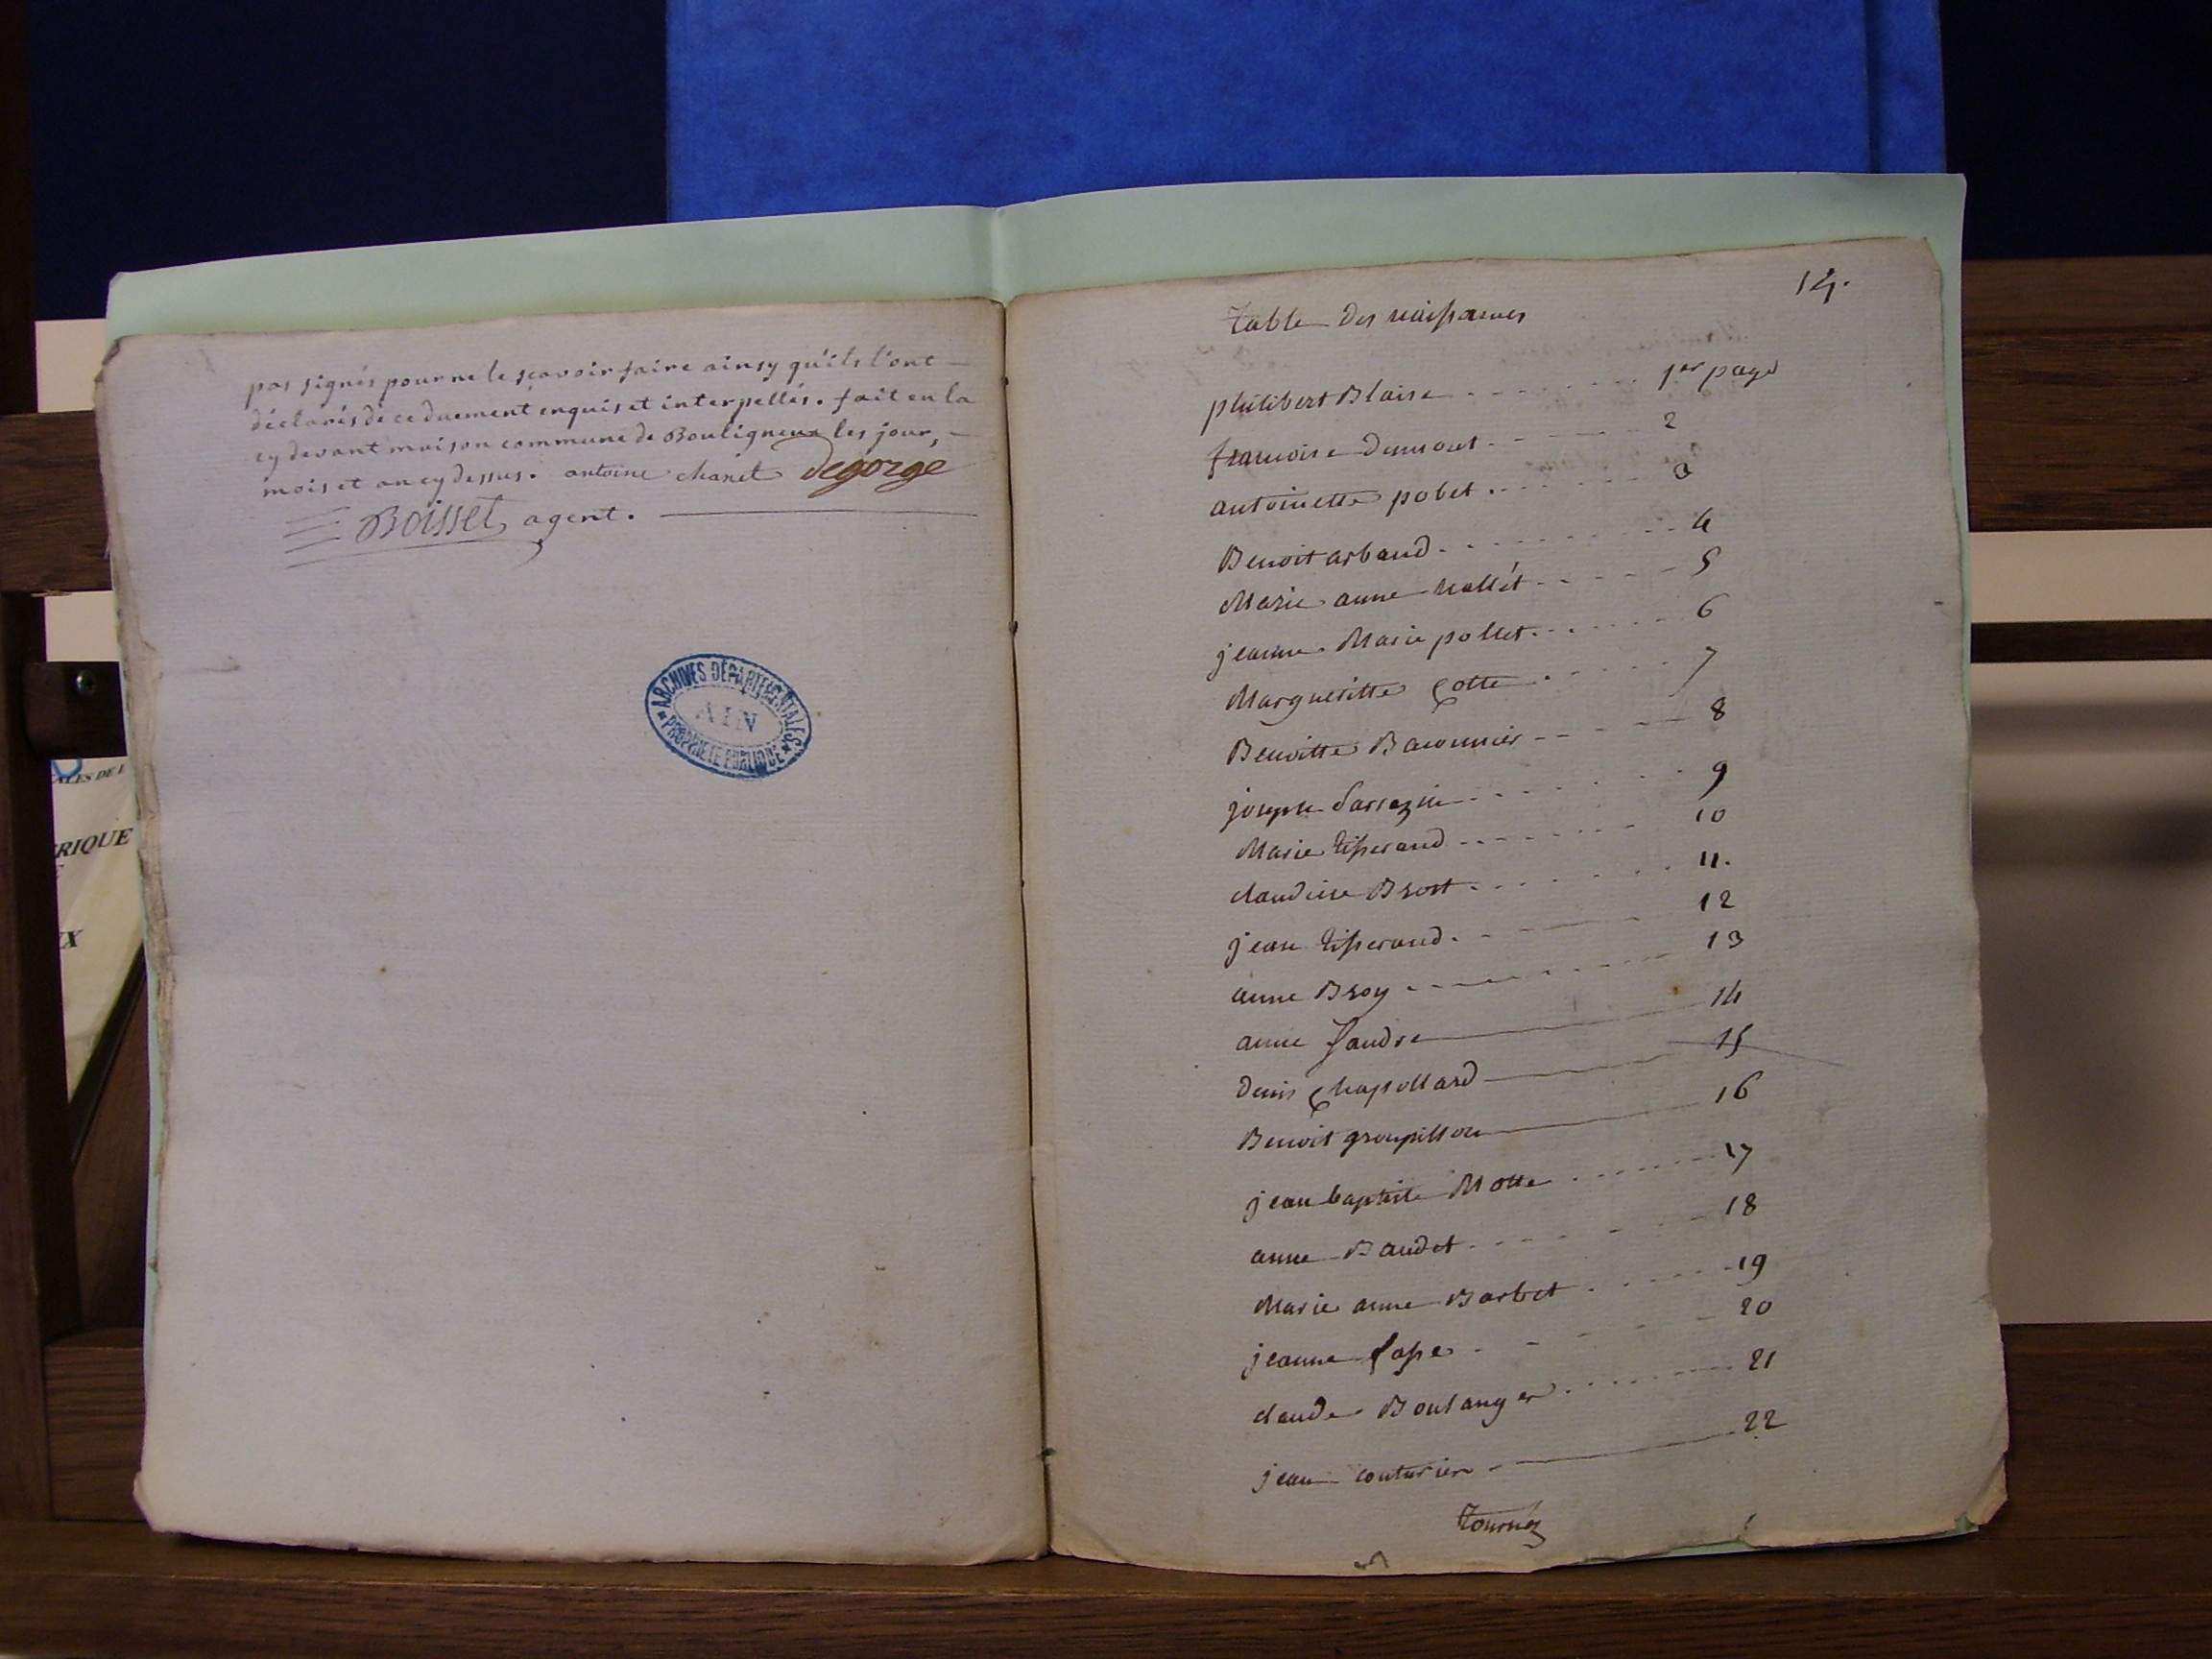 pas signés pour ne le scavoir faire ainsy qu'ils l'ont
déclarés de ce duement enquis et interpellés. fait en la
cy devant maison commune de Bouligneux les jour,
mois et an cy dessus. antoine chanel Degorge
Boisset, agent.
ARCHIVES DÉPARTEMENTALES
AIN
PROPRIÉTÉ PUBLIQUE
RIQUE
IX
14.
Table Des naissances
philibert Blaise 1er page
francoise Dumont 2
antoinette pobet 3
Benoit arbaud 4
Marie anne nallét 5
jeanne Marie pollet 6
Margueritte Cotte 7
Benoitte Baconnier 8
joseph Sarrazin 9
Marie tisserand 10
claudine Brost 11.
jean tisserand 12
anne Broy 13
anne fandre 14
Denis Chapollard 15
Benoit groupillon 16
jean baptiste Motte 17
anne Baudet 18
Marie anne Barbet 19
jeanne 20
claude Boulanger 21
jean couturier 22
Tournéz